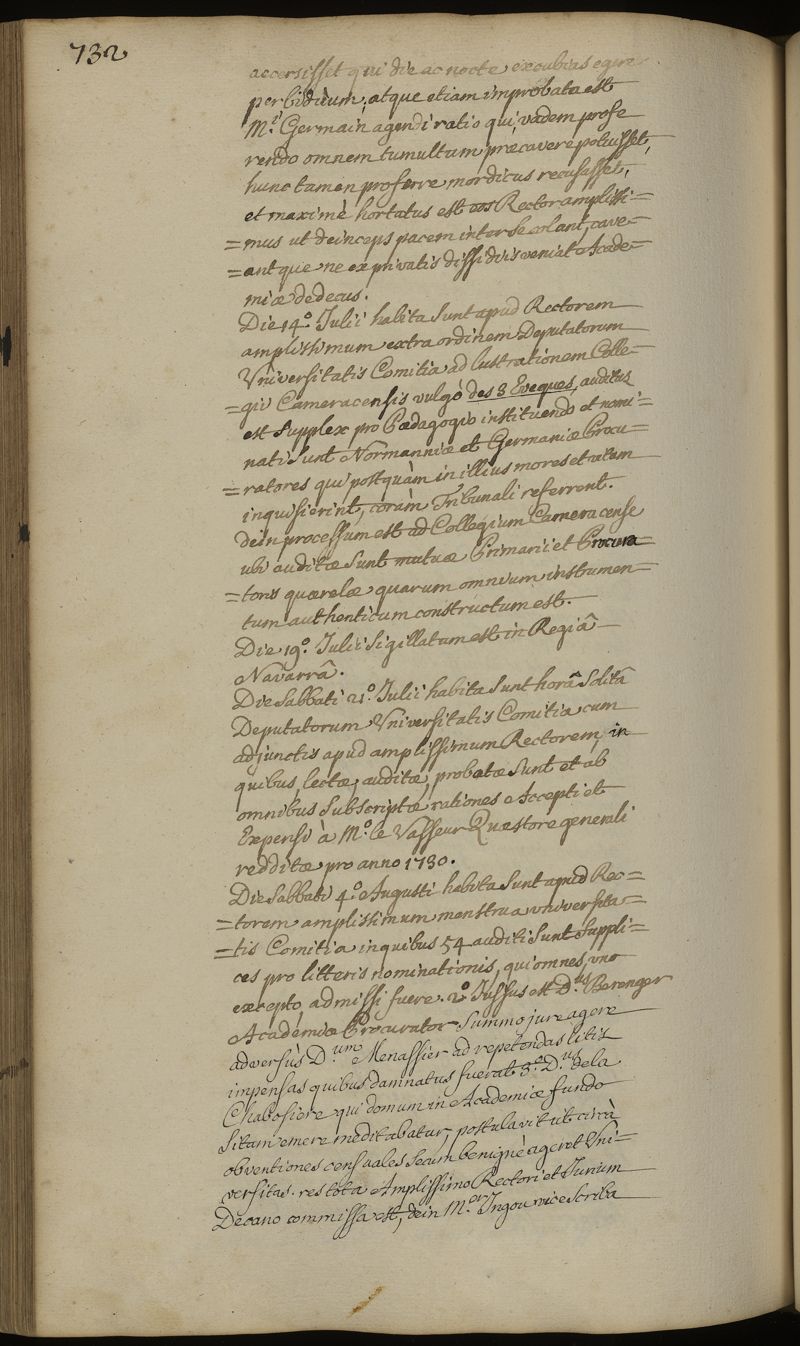 732
accersisset qui die ac nocte excubias egere
perbiduum, atque etiam improbata est
M.ri Germain agendi ratio qui, vadem profe
rendo omnem tumultum præcavere potuisset,
hunc tamen proferre mordicus recusasset,
et maximè hortatus est eos Rector amplissi=
=mus ut deinceps pacem inter se colant, cave=
=antque ne ex privatis dissidiis veniat Acade=
miæ dedecus.
Die 14.º Julii habita sunt apud Rectorem
amplissimum extra ordinem Deputatorum
Universitatis Comitia ad lustrationem Colle=
=gii Cameracensis vulgò des 3 Eveques, auditus
est supplex pro Pædagogio instituendo et nomi=
nati sunt Normanniæ et Germaniæ Procu=
=ratores qui postquàm in illius mores et vitam
inquisierint, coràm Tribunali referrent.
dein processum est ad Collegium Cameracense
ubi auditæ sunt mutuæ Primarii et Procura=
=toris quærelæ quarum omnium instrumen=
tum authenticum constructum est.
Die 19.º Julii sigillatum est in Regiâ
Navarrâ.
Die Sabbati 21.º Julii habita sunt horâ solitâ
Deputatorum Universitatis Comitia cum
adjunctis apud amplissimum Rectorem, in
quibus, lectæ, auditæ, probatæ sunt et ab
omnibus subscriptæ rationes Accepti et
Expensi à M.º le Vasseur Quæstore generali
redditæ pro anno 1730.
Die Sabbati 4.º Augusti habita sunt apud Rec=
=torem amplissimum menstrua universita=
=tis Comitia in quibus 54 auditi sunt suppli=
ces pro litteris nominationis, qui omnes, uno
excepto, admissi fuere. 2.º Jussus est D.us Berenger
Academiæ Procurator summo jure agere
adversùs D.um Menassier ad repetendas litis
impensas quibus damnatus fuerat 3.º D.us de la
Chabosiere qui domum in Academiæ fundo
sitam emere meditabatur, postulavit ut circà
obventiones censuales secum benignè ageret Uni=
versitas. res tota Amplissimo Rectori et Jurium
Decano commissa est, dein M.er Ingou vice scriba